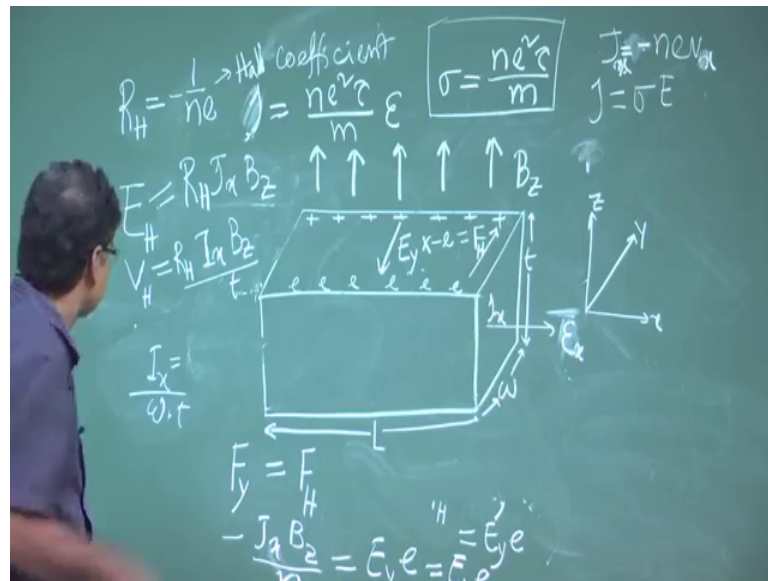 R_H = -1/ne → Hall coefficient
J = ne²τ/m ε
σ = ne²τ/m
J_x = -nev_x
J = σE
E_H = R_H J_x B_z
V_H = R_H I_x B_z/t
B_z
+ + + + + + +
E_y x-e = F_H
e e e e e e e
t
z
Y
x
J_x
ε_x
I_x =
ω.t
ω
L
F_y = F_H
H = E_y e
-J_x B_z/n = E_y e = E_y e